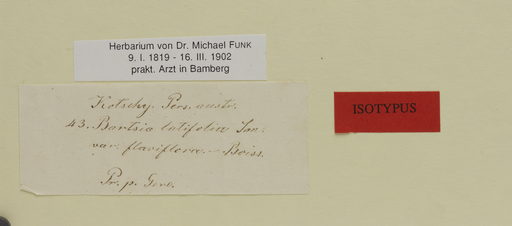 Herbarium von Dr. Michael FUNK
9. I. 1819 - 16. III. 1902
prakt. Arzt in Bamberg
Kotschy. Pers. austr.
43. Bartsia latifolia
var. flaviflora. - Boiss.
Pr. p. Gere.
ISOTYPUS